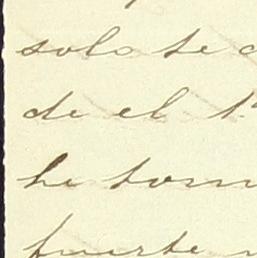 solo te
de el 1º
he tom
fuerte